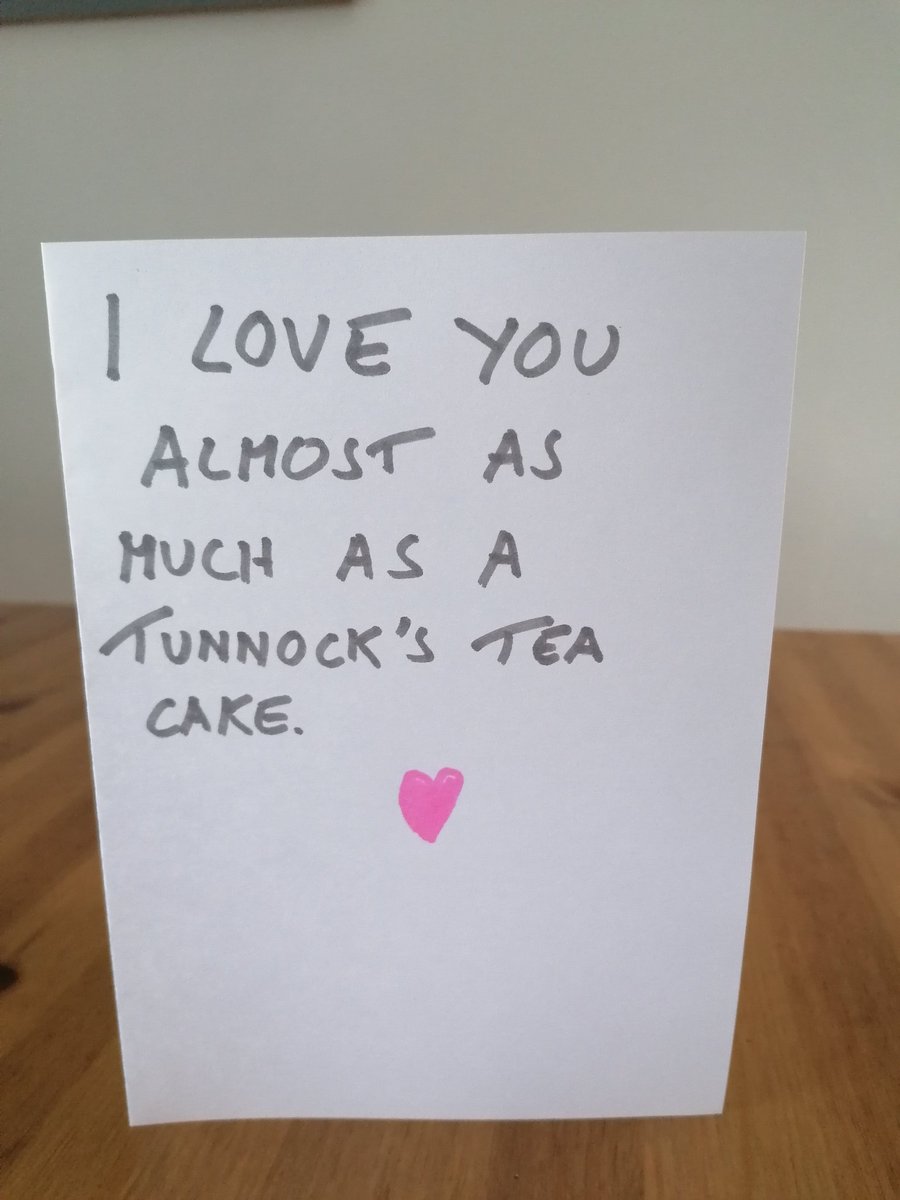 I LOVE YOU
ALMOST AS
MUCH AS A
TUNNOCK'S TEA
CAKE.